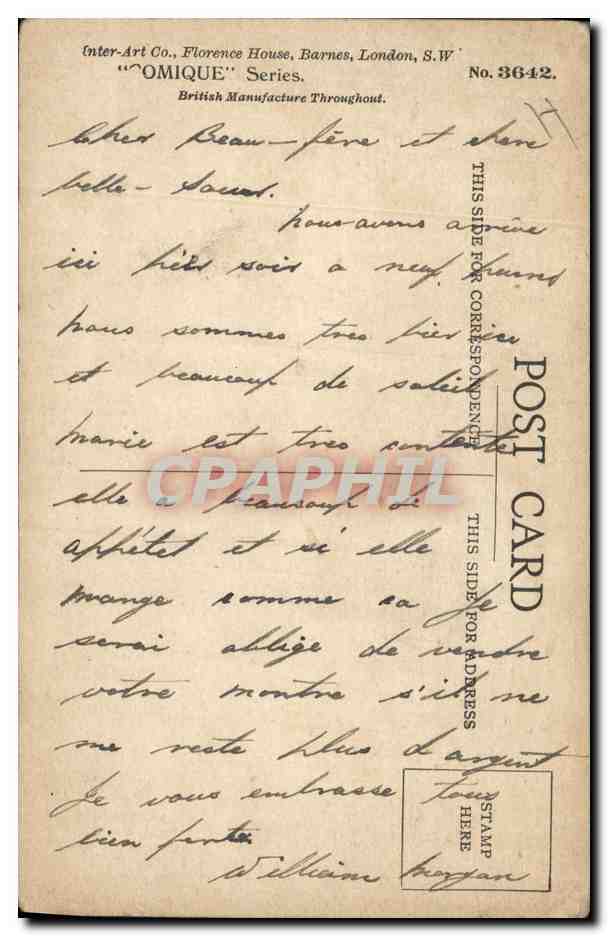 Inter-Art Co., Florence House, Barnes, London, S.W
"COMIQUE" Series.
No. 3642.
British Manufacture Throughout.
Cher Beau-fère et chere
belle-Soeur.
nous avons arrive
ici hier soir a neuf heures
nous sommes tres bien ici
et beaucoup de soleil
marie est tres contente
elle a beaucoup di
appétet et si elle
mange comme ca je
serai obblige de vendre
votre montre s'il ne
me reste plus d argent
Je vous embrasse tous
bien forte
William Morgan
THIS SIDE FOR CORRESPONDENCE
POST CARD
THIS SIDE FOR ADDRESS
STAMP
HERE
CPAPHIL